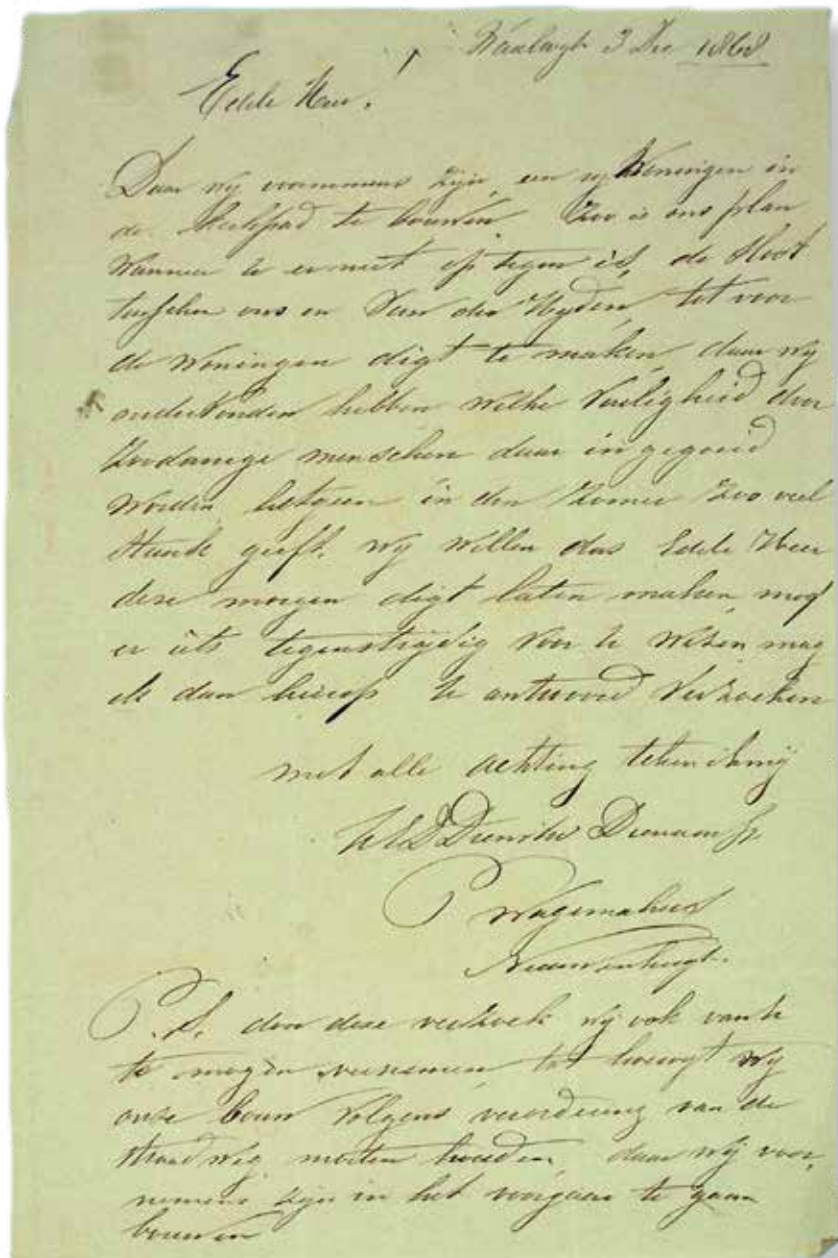 Waalwyk 3 Dec 1868
Edele Heer!
Daar wij voornemens zijn, een rij Woningen in
de Kerkpad te bouwen. Zoo is ons plan
Wanneer U er niet op tegen is, de Sloot
tusschen ons en Van der Heyden, tot voor
de Woningen digt te maken, daar wij
ondervonden hebben welke Vuiligheid door
Zoodanige menschen daar in gegooid
Worden hetgeen in den Zomer Zoo veel
Stank geeft. Wij Willen dus Edele Heer
deze morgen digt laten maken, mogt
er iets tegenstrijdig voor U Wezen mag
ik dan hierop U antwoord Verzoeken
met alle achting teken ik mij
UED Dienstw Dienaar
P Wagemakers
P.S. door deze verzoek wij ook van U
te mogen vernemen tot hoever wij
onze bouw Volgens verordening van de
Straatweg moeten houden, daar wij voor,
nemens zijn in het voorjaar te gaan
bouwen